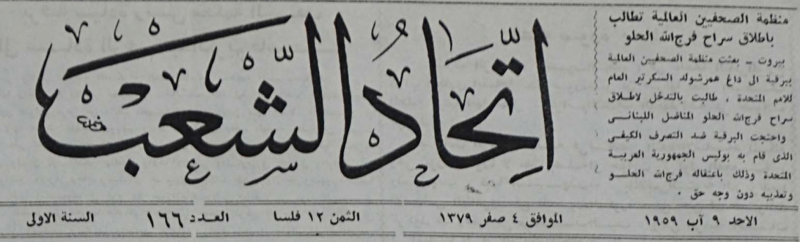 منظمة الصحفيين العالمية تطالب
باطلاق سراح فرج‌الله الحلو
بيروت ــ بعثت منظمة الصحفيين العالمية
ببرقية الى داغ همرشولد السكرتير العام
للامم المتحدة ، طالبت بالتدخل لاطلاق
سراح فرج‌الله الحلو المناضل اللبنانى
واحتجت البرقية ضد التصرف الكيفى
الذى قام به بوليس الجمهورية العربية
المتحدة وذلك باعتقاله فرج‌الله الحلو
وتعذيبه دون وجه حق .
اتحاد الشعب
الاحد ٩ آب ١٩٥٩
الموافق ٤ صفر ١٣٧٩
الثمن ١٢ فلسا
العدد ١٦٦
السنة الاولى